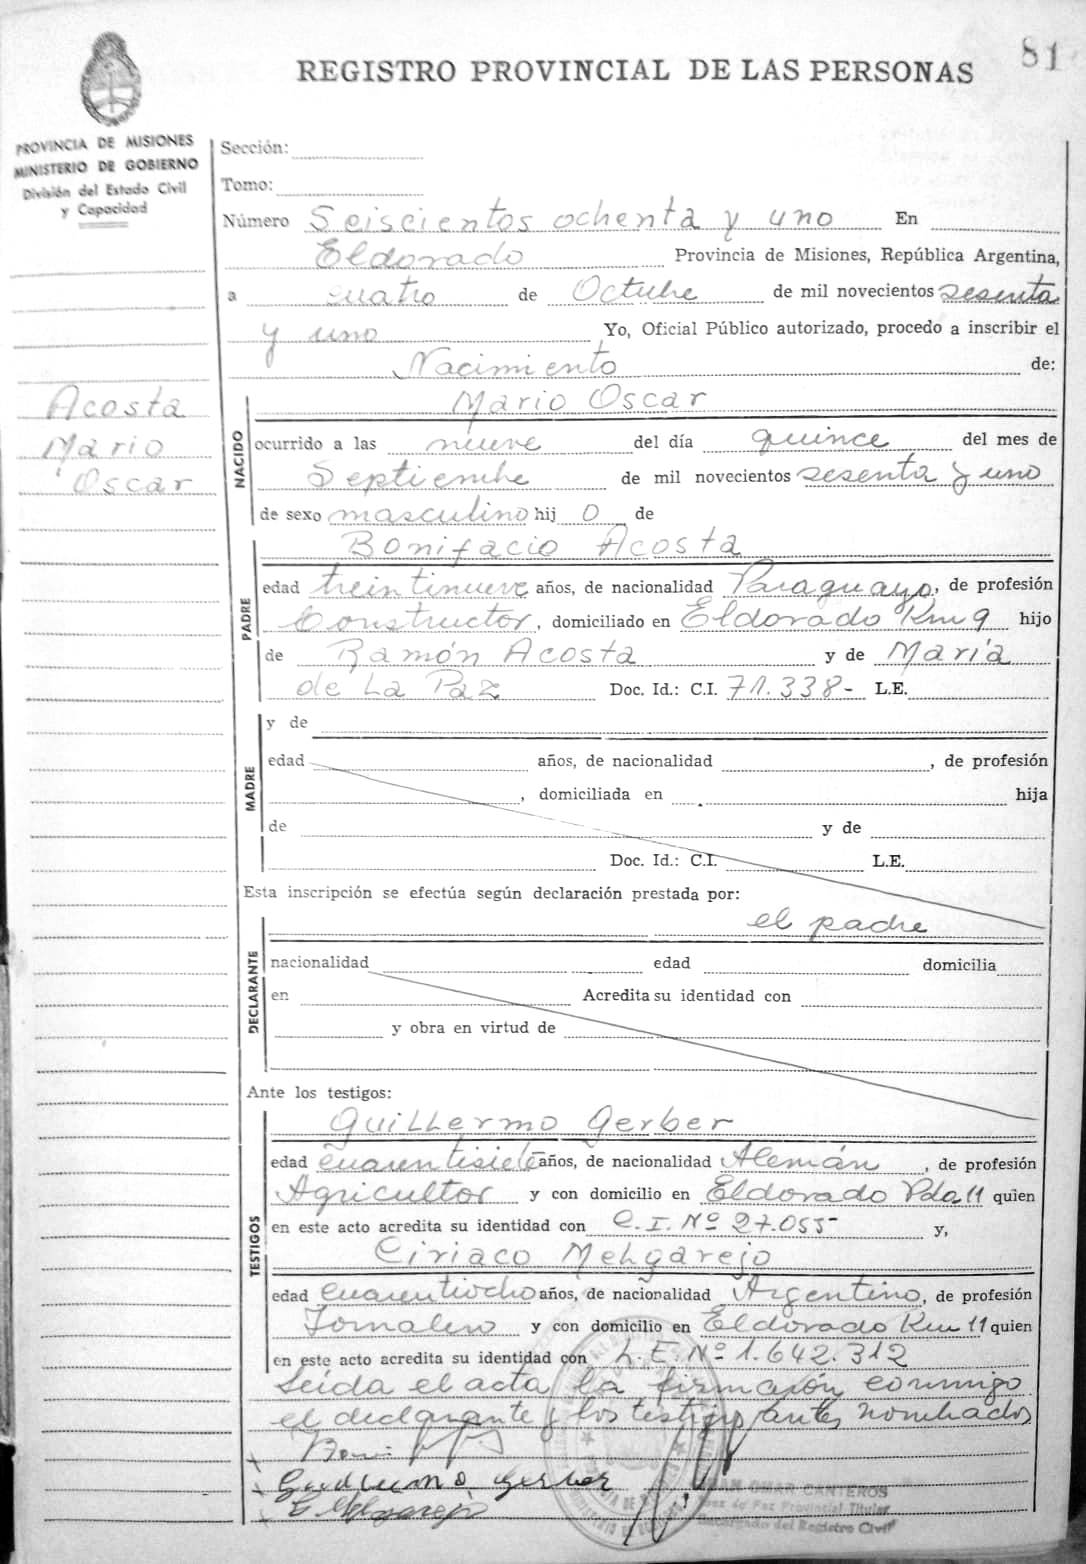 81
REGISTRO PROVINCIAL DE LAS PERSONAS
PROVINCIA DE MISIONES
MINISTERIO DE GOBIERNO
División del Estado Civil
y Capacidad
Acosta
Mario
Oscar
Sección:
Tomo:
Número Seiscientos ochenta y uno En
Eldorado Provincia de Misiones, República Argentina,
a cuatro de Octubre de mil novecientos sesenta
y uno Yo, Oficial Público autorizado, procedo a inscribir el
Nacimiento de:
NACIDO
Mario Oscar
ocurrido a las nueve del día quince del mes de
Septiembre de mil novecientos sesenta y uno
de sexo masculino hij o de
PADRE
Bonifacio Acosta
edad treintinueve años, de nacionalidad Paraguayo, de profesión
Constructor, domiciliado en Eldorado Km 9 hijo
de Ramón Acosta y de María
de La Paz Doc. Id.: C.I. 71.338- L.E.
MADRE
y de
edad años, de nacionalidad , de profesión
, domiciliada en hija
de y de
Doc. Id.: C.I. L.E.
Esta inscripción se efectúa según declaración prestada por:
DECLARANTE
el padre
nacionalidad edad domicilia
en Acredita su identidad con
y obra en virtud de
Ante los testigos:
TESTIGOS
Guillermo Gerber
edad cuarentisiete años, de nacionalidad Alemán, de profesión
Agricultor y con domicilio en Eldorado Pda 11 quien
en este acto acredita su identidad con C.I. Nº 27.055- y,
Ciriaco Melgarejo
edad cuarentiocho años, de nacionalidad Argentino, de profesión
Jornalero y con domicilio en Eldorado Km 11 quien
en este acto acredita su identidad con L.E. Nº 1.642.312
Leida el acta la firmarón conmigo
el declarante y los testigos antes nombrados
Guillermo Gerber
OMAR CANTEROS
Juez de Paz Provincial Titular
Encargado del Registro Civil